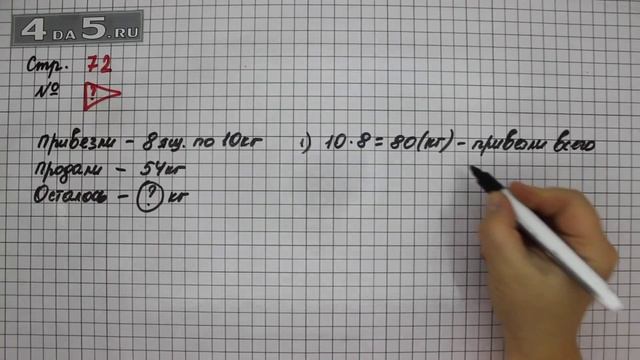 4 DA 5.RU
Стр. 72
№ ?
Привезли – 8 ящ. по 10кг
Продали – 54кг
Осталось – ? кг
1) 10 · 8 = 80 (кг) – привезли всего